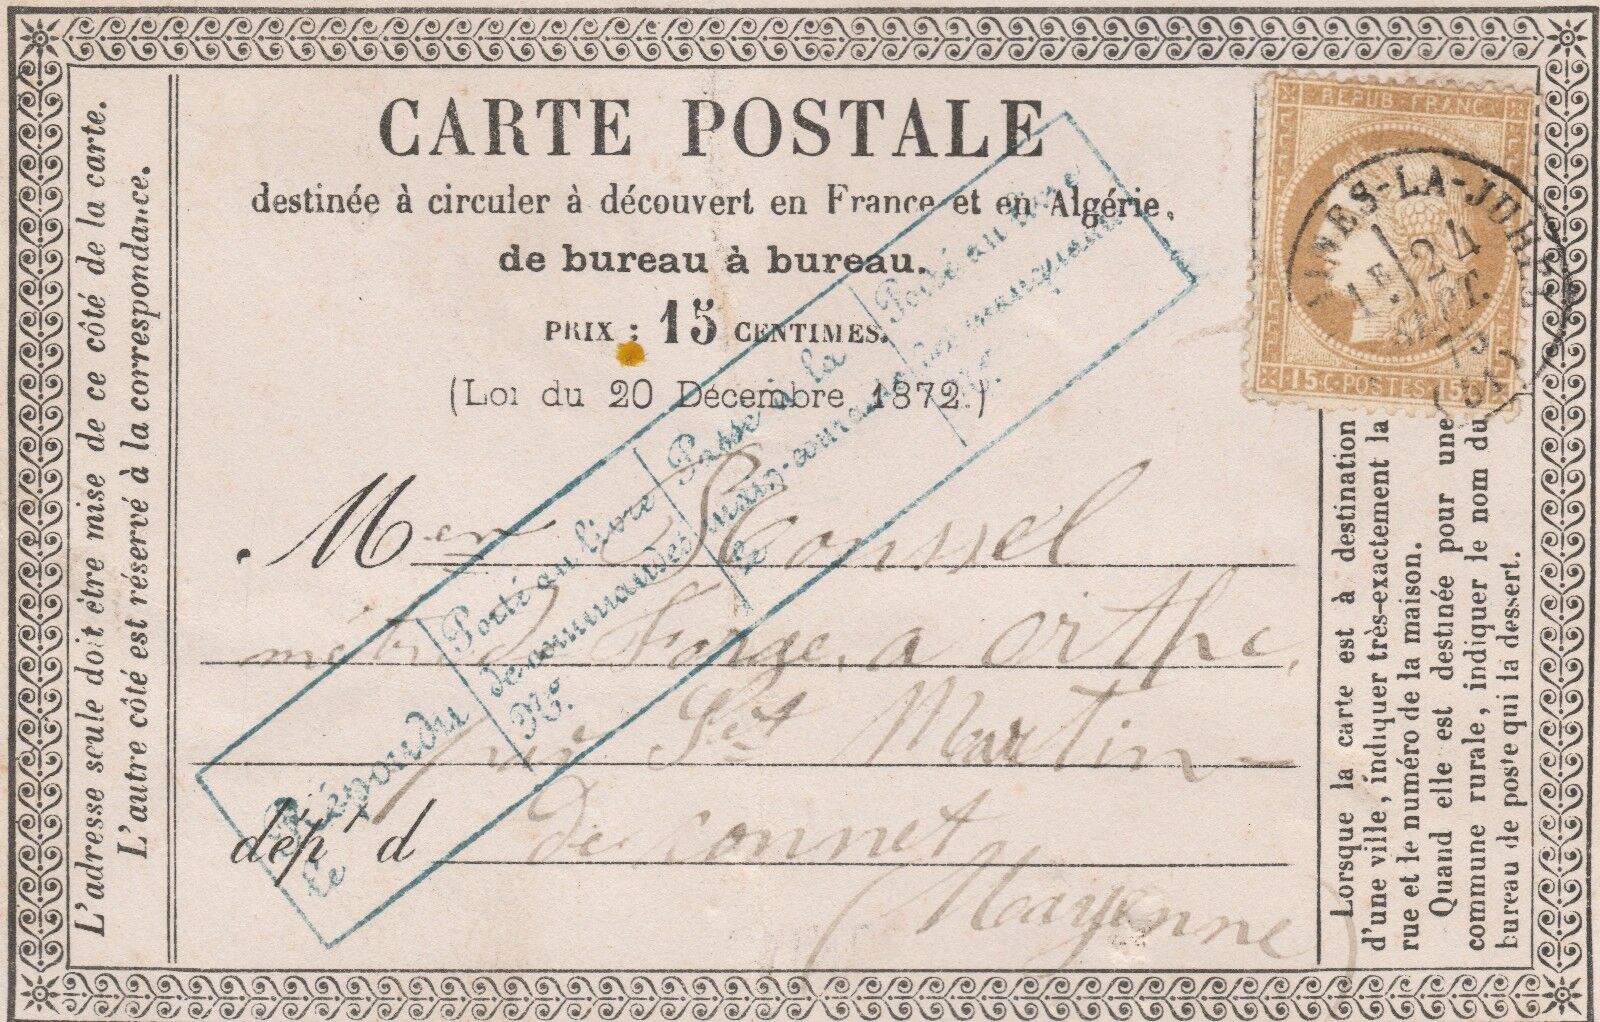 CARTE POSTALE
destinée à circuler à découvert en France et en Algérie,
de bureau à bureau.
PRIX : 15 CENTIMES.
(Loi du 20 Décembre 1872.)
REPUB. FRANC.
15 C. POSTES 15 C.
-LA-JUHEL
1E 24
SEPT.
75
(51)
L'adresse seule doit être mise de ce côté de la carte.
L'autre côté est réservé à la correspondance.
Répondu
le
Porté au livre
de commandes
No.
Passé à la
main-courante
le
Porté au livre
des manquants
No.
Men Roussel
de Forge, a orthe,
près St Martin-
dép t d de connet
(Mayenne)
Lorsque la carte est à destination
d'une ville, indiquer très-exactement la
rue et le numéro de la maison.
Quand elle est destinée pour une
commune rurale, indiquer le nom du
bureau de poste qui la dessert.